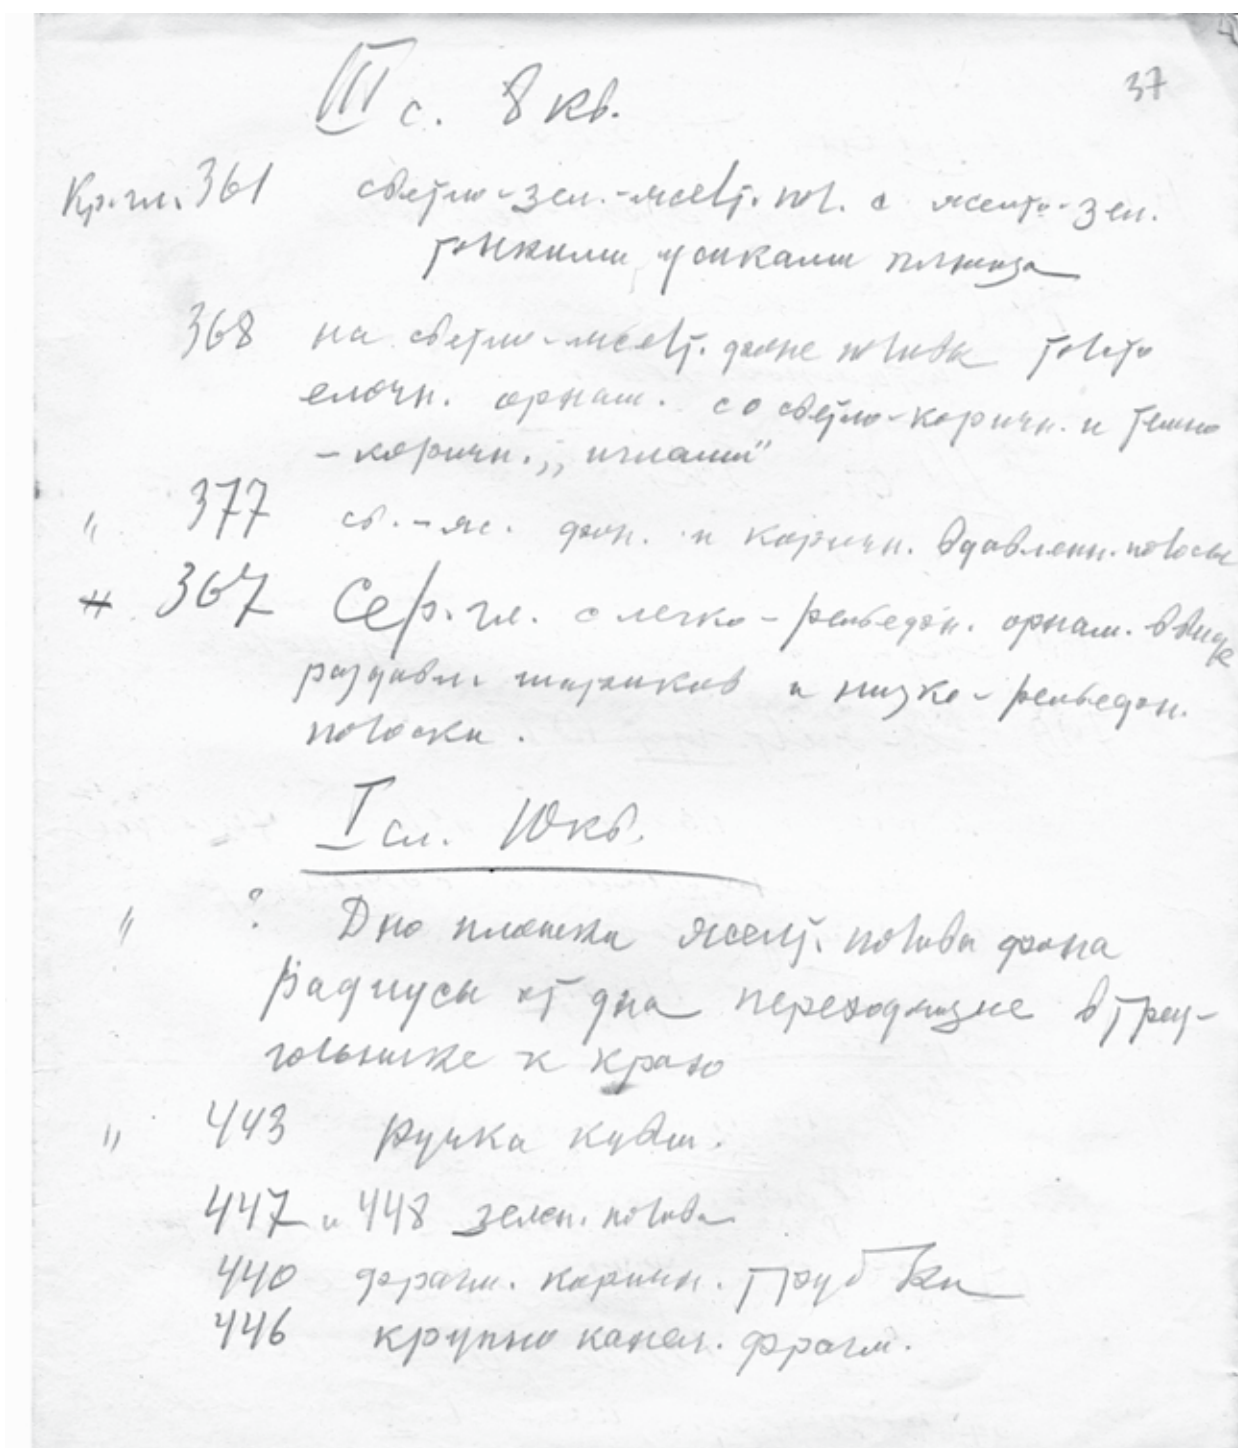 37
III с. 8 кв.
Кр. гл. 361 светло-зел.-желт. пол. с желто-зел.
тонкими усиками
368 на светло-желт. фоне полива
елочн. орнам. со светло-коричн. и темно
-коричн. „иглами"
" 377 св.-ж. фон. и коричн. вдавленн. полосы
367 Сер. гл. с легко-рельефн. орнам. в виде
раздавл. шариков и низко-рельефн.
полоски.
I сл. 10 кв.
" ? Дно плошки желт. полива фона
Радиусы от дна переходящие в треу-
гольнике к краю
" 443 ручка кувш.
447 и 448 зелен. полива
440 фрагм. коричн. трубки
446 крупно канел. фрагм.